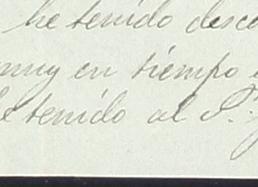 he tenido desc
muy en tiempo
tenido al S.